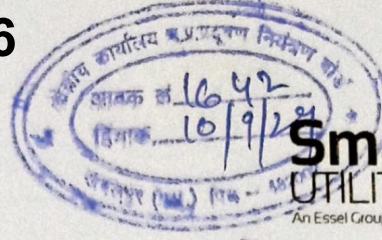 6
क्षेत्रीय कार्यालय म.प्र.प्रदूषण नियंत्रण बोर्ड
आवक क्रं. 1642
दिनांक 10/9/24
जबलपुर (म.प्र.)
Sm
UTILIT
An Essel Grou